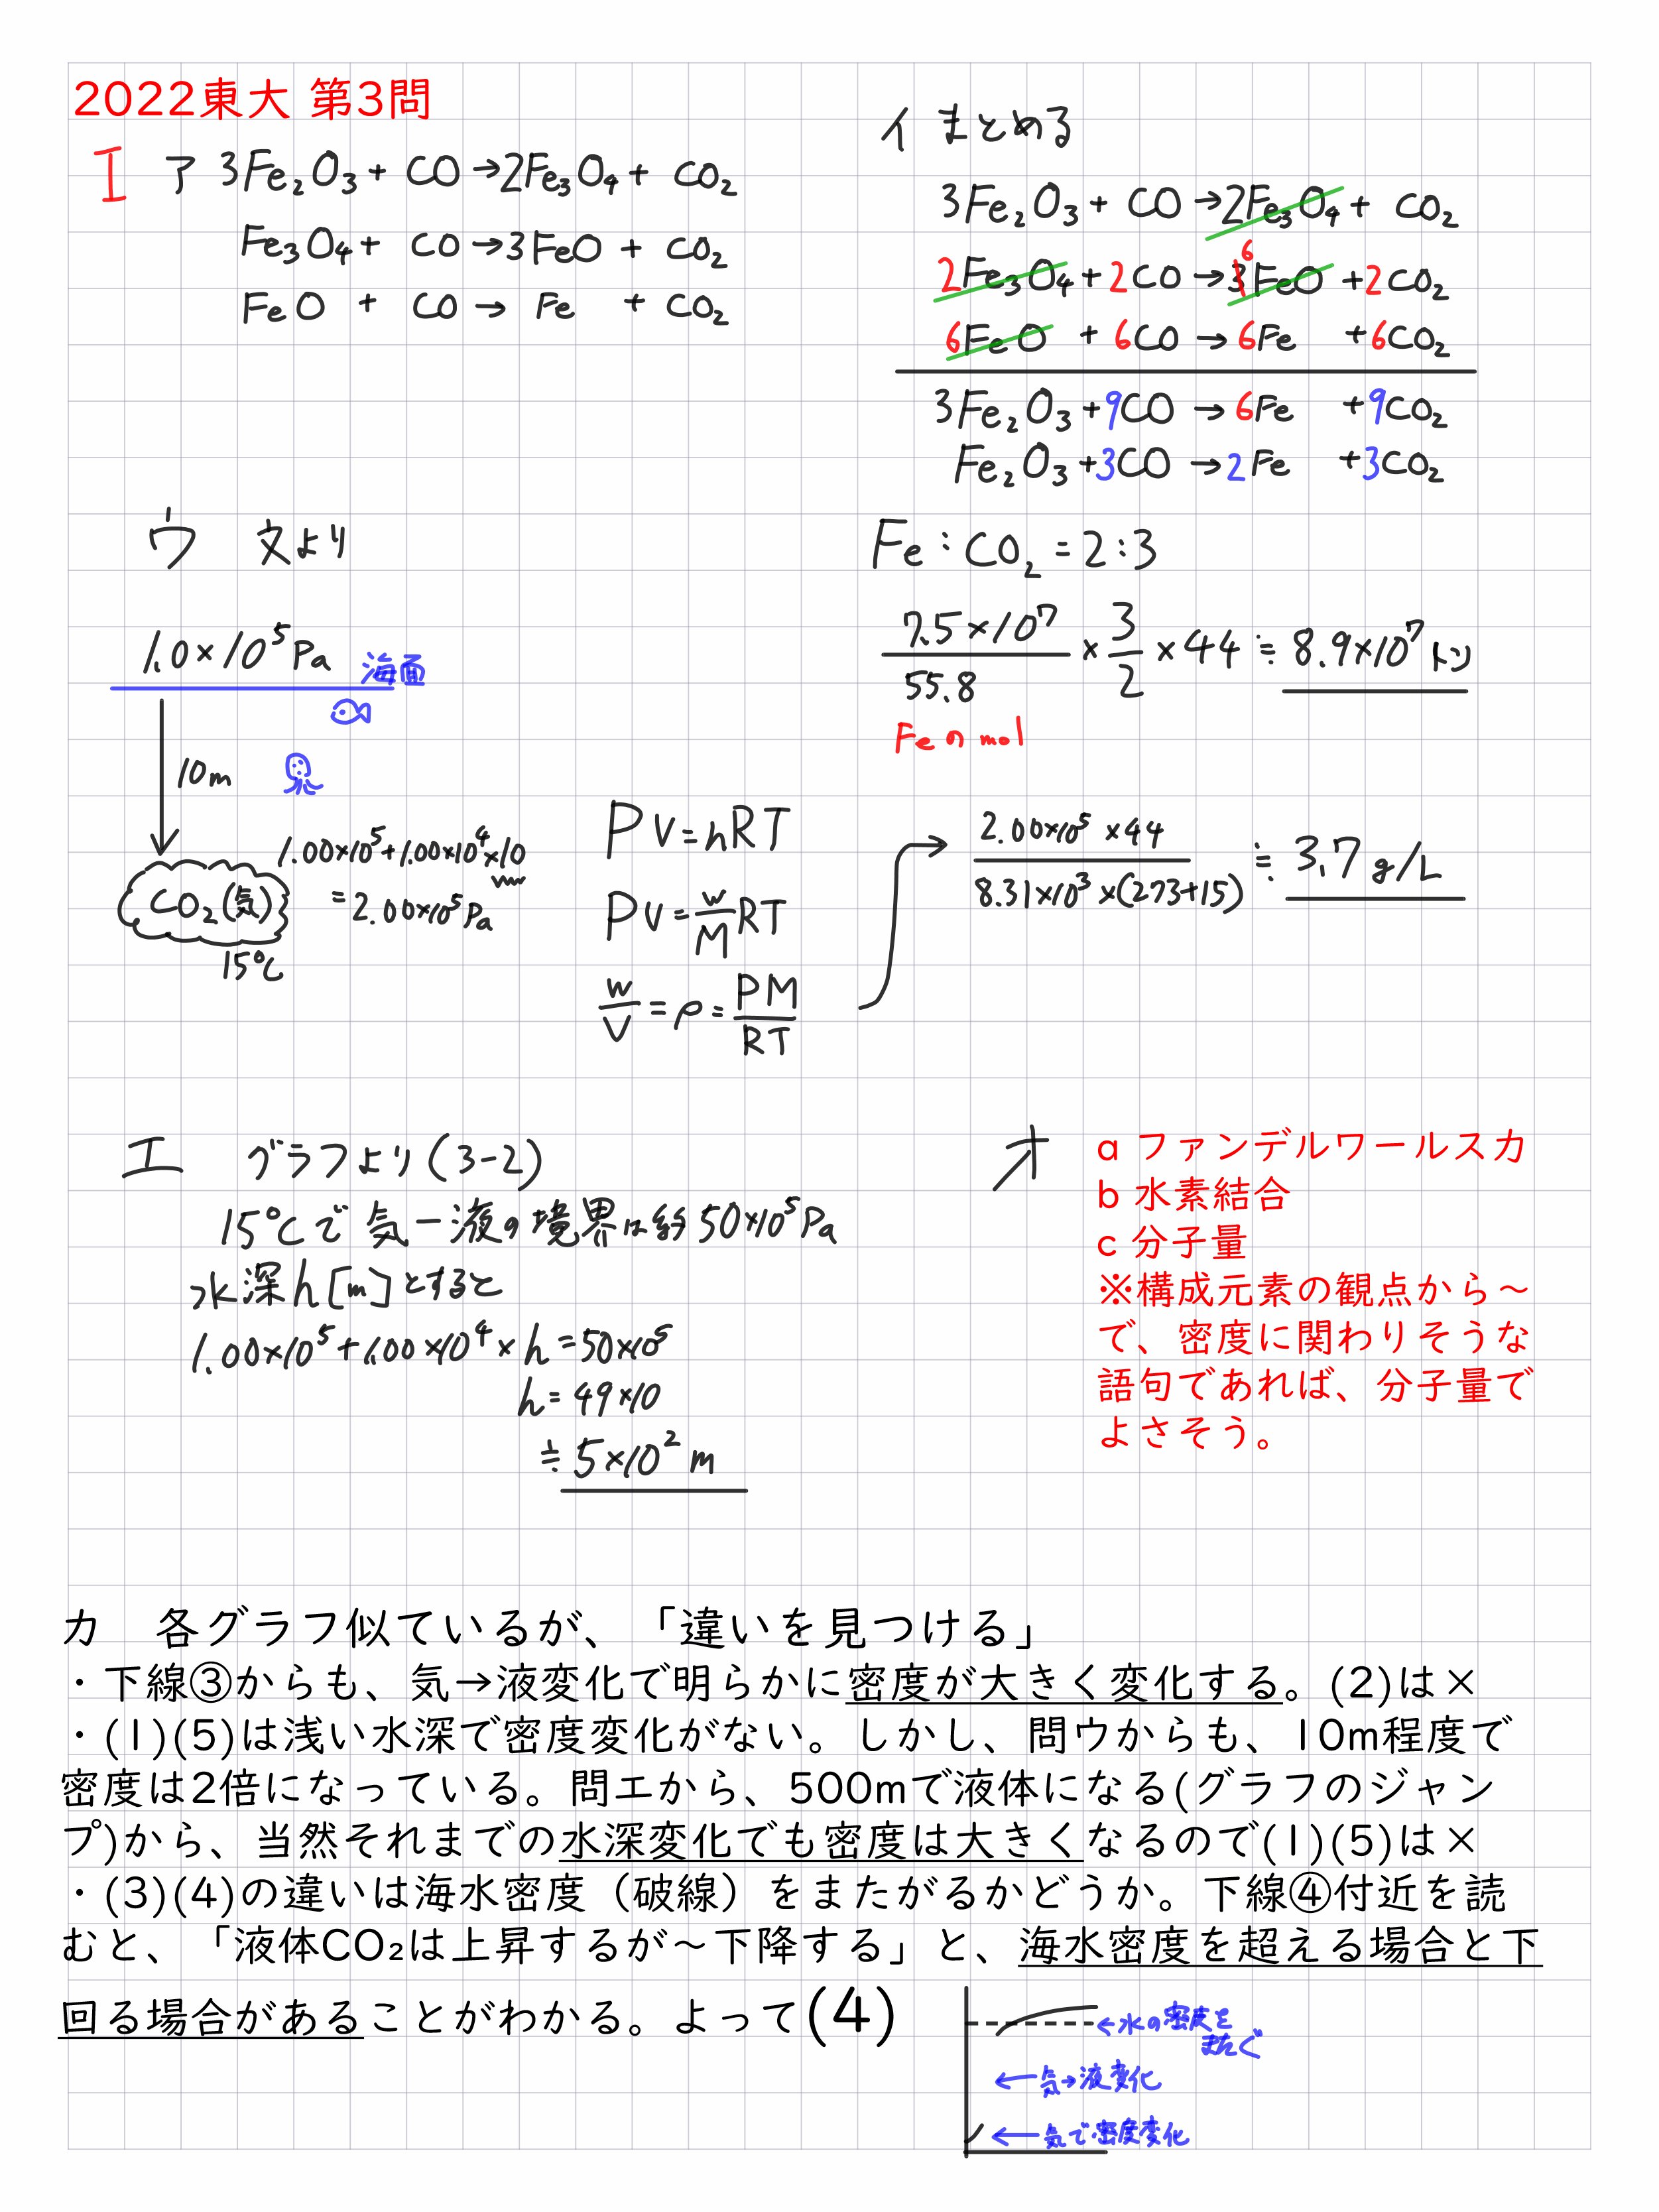 2022東大 第3問
I ア 3Fe₂O₃ + CO → 2Fe₃O₄ + CO₂
Fe₃O₄ + CO → 3FeO + CO₂
FeO + CO → Fe + CO₂
イ まとめる
3Fe₂O₃ + CO → 2Fe₃O₄ + CO₂
2Fe₃O₄ + 2CO → 6FeO + 2CO₂
6FeO + 6CO → 6Fe + 6CO₂
3Fe₂O₃ + 9CO → 6Fe + 9CO₂
Fe₂O₃ + 3CO → 2Fe + 3CO₂
Fe : CO₂ = 2 : 3
7.5×10⁷/55.8 × 3/2 × 44 ≒ 8.9×10⁷トン
Feのmol
ウ 文より
1.0×10⁵Pa 海面
10m
1.00×10⁵+1.00×10⁴×10
=2.00×10⁵Pa
CO₂(気)
15℃
PV=nRT
PV=w/M RT
w/V=ρ=PM/RT
2.00×10⁵×44/8.31×10³×(273+15) ≒ 3.7g/L
エ グラフより(3-2)
15℃で気-液の境界は約50×10⁵Pa
水深h[m]とすると
1.00×10⁵+1.00×10⁴×h=50×10⁵
h=49×10
≒5×10²m
オ a ファンデルワールス力
b 水素結合
c 分子量
※構成元素の観点から～
で、密度に関わりそうな
語句であれば、分子量で
よさそう。
カ 各グラフ似ているが、「違いを見つける」
・下線③からも、気→液変化で明らかに密度が大きく変化する。(2)は×
・(1)(5)は浅い水深で密度変化がない。しかし、問ウからも、10m程度で
密度は2倍になっている。問エから、500mで液体になる(グラフのジャン
プ)から、当然それまでの水深変化でも密度は大きくなるので(1)(5)は×
・(3)(4)の違いは海水密度（破線）をまたがるかどうか。下線④付近を読
むと、「液体CO₂は上昇するが～下降する」と、海水密度を超える場合と下
回る場合があることがわかる。よって(4)
←水の密度を
またぐ
←気→液変化
←気で密度変化